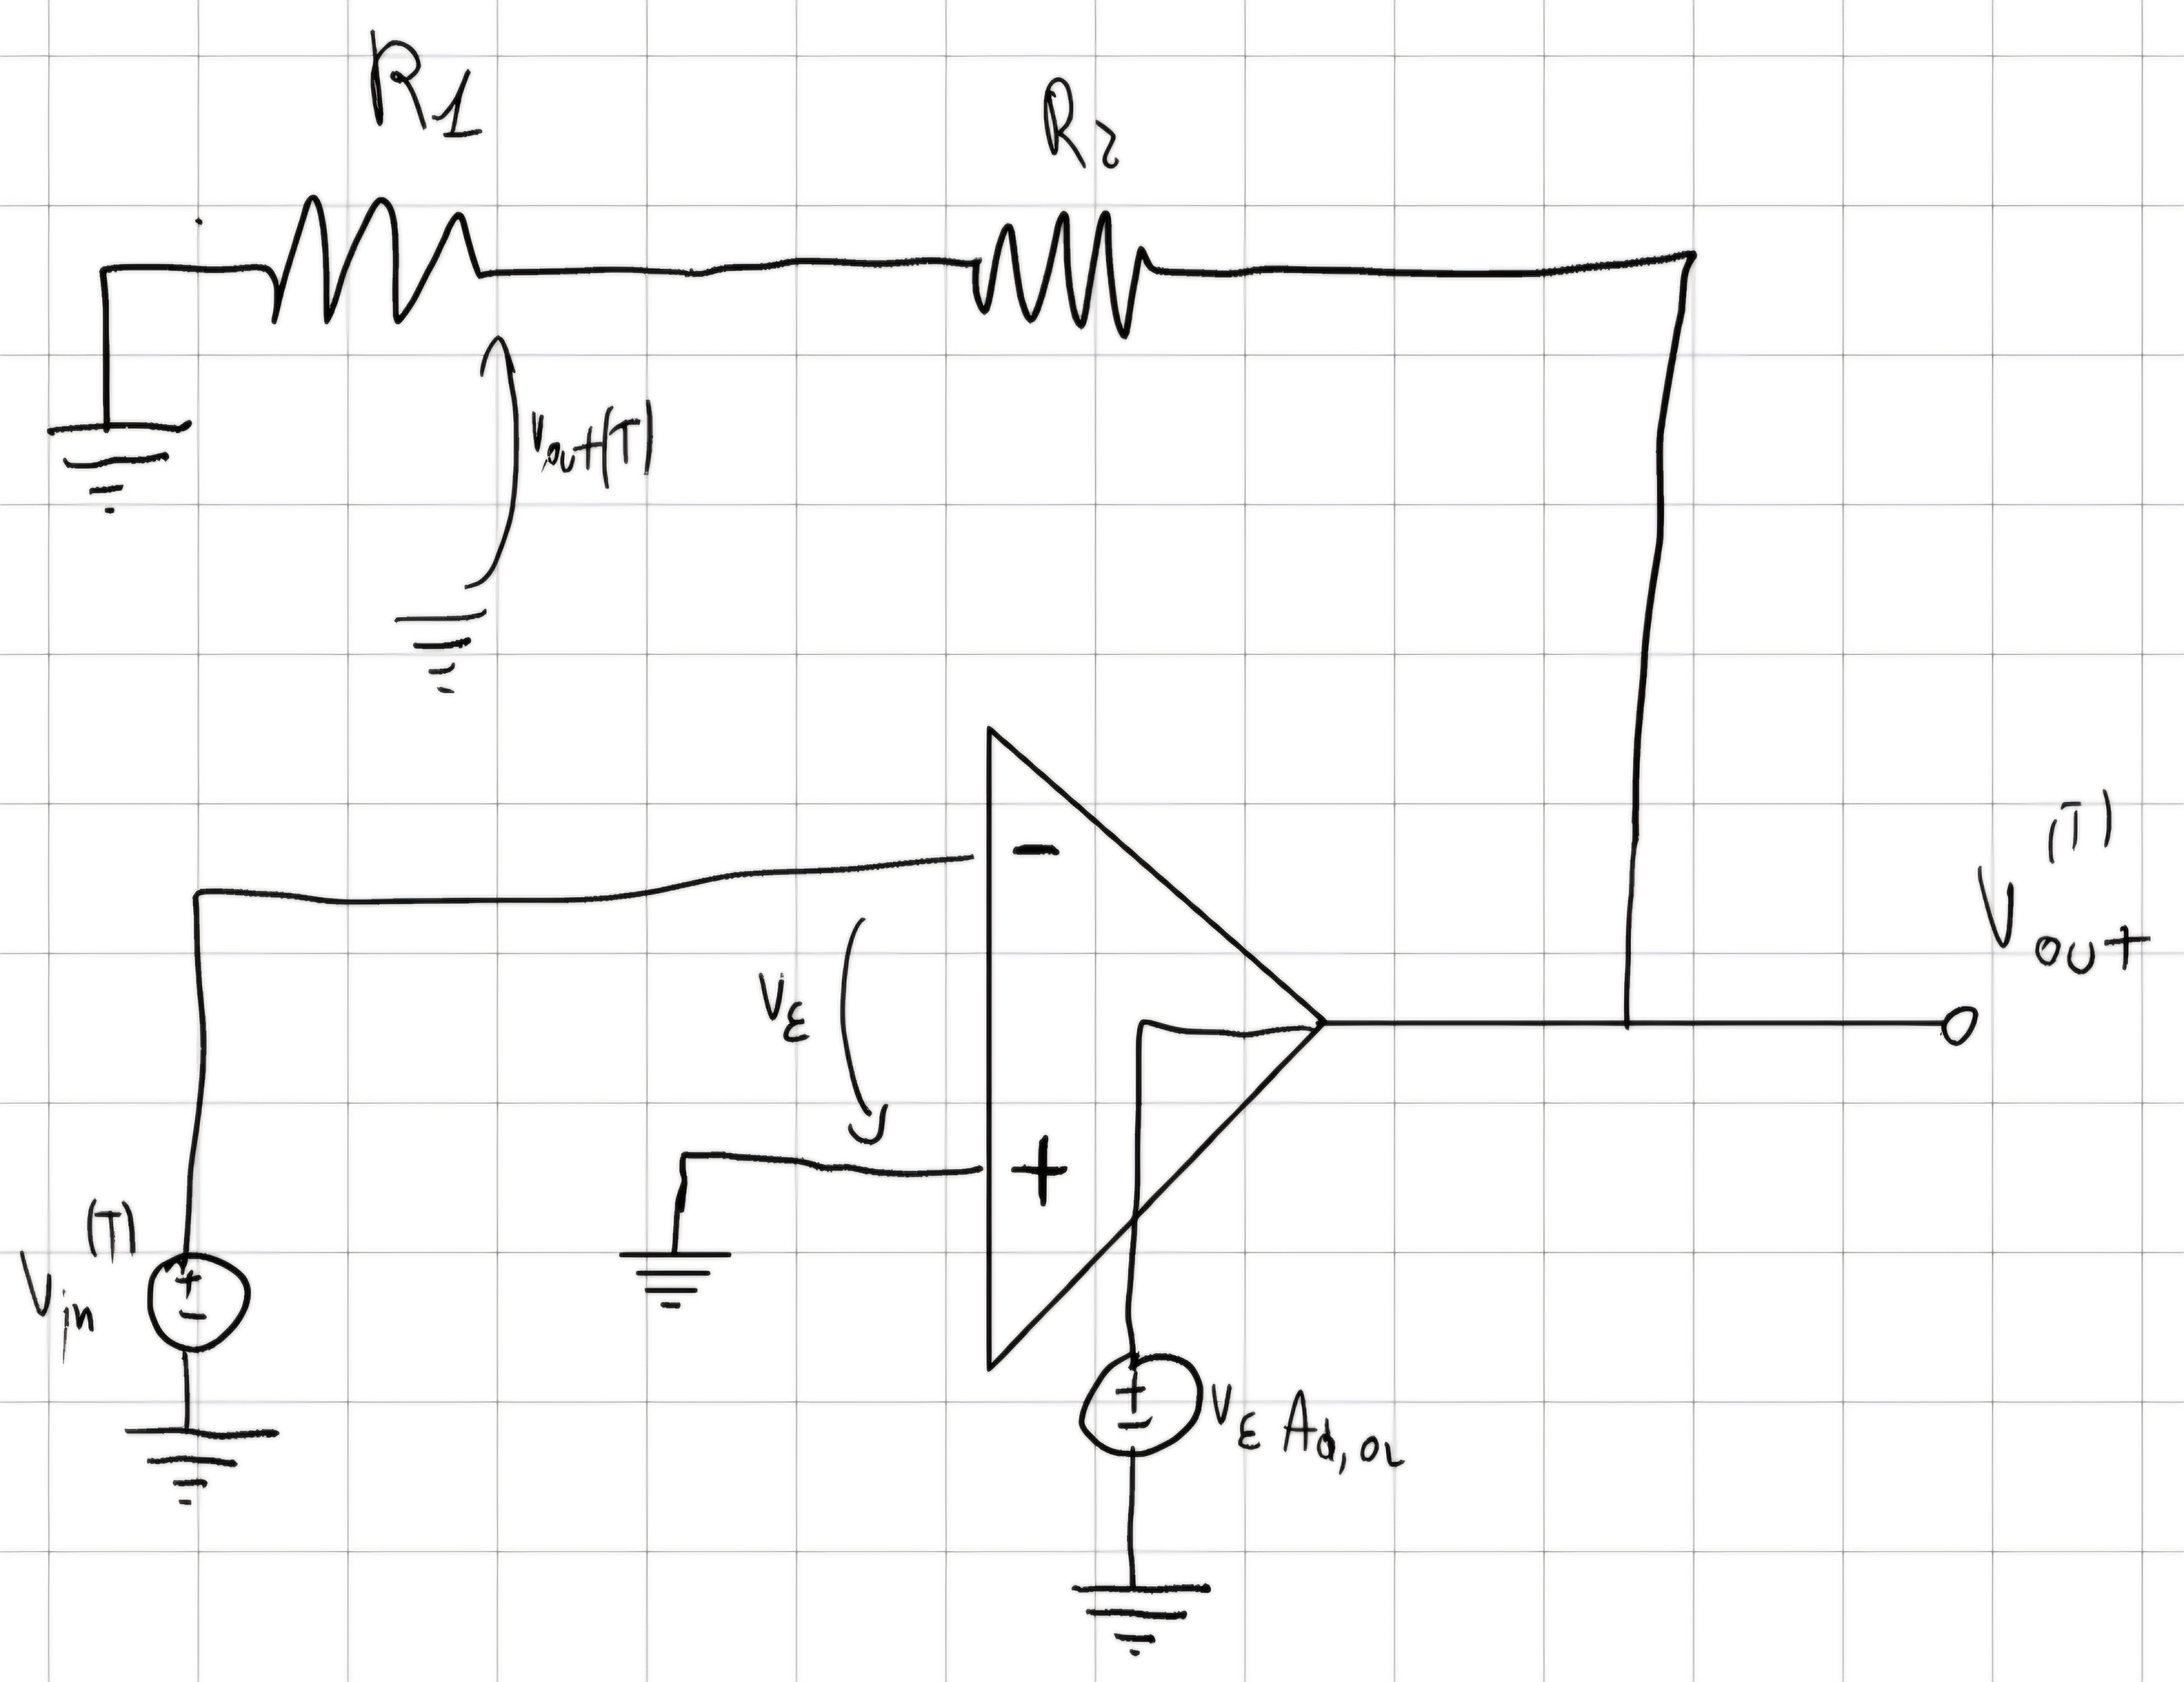 R1
R2
Vout(T)
-
(T)
Vout
Vε
+
(T)
Vin
+
-
+
-
Vε Ad,OL